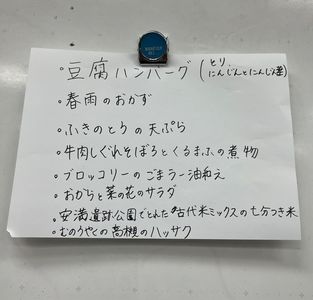 ・豆腐ハンバーグ（とり、にんじんとにんじん葉）
・春雨のおかず
・ふきのとうの天ぷら
・牛肉しぐれそぼろとくるまふの煮物
・ブロッコリーのごまラー油和え
・おからと菜の花のサラダ
・安満遺跡公園でとれた古代米ミックスの七分つき米
・むのうやくの高槻のハッサク